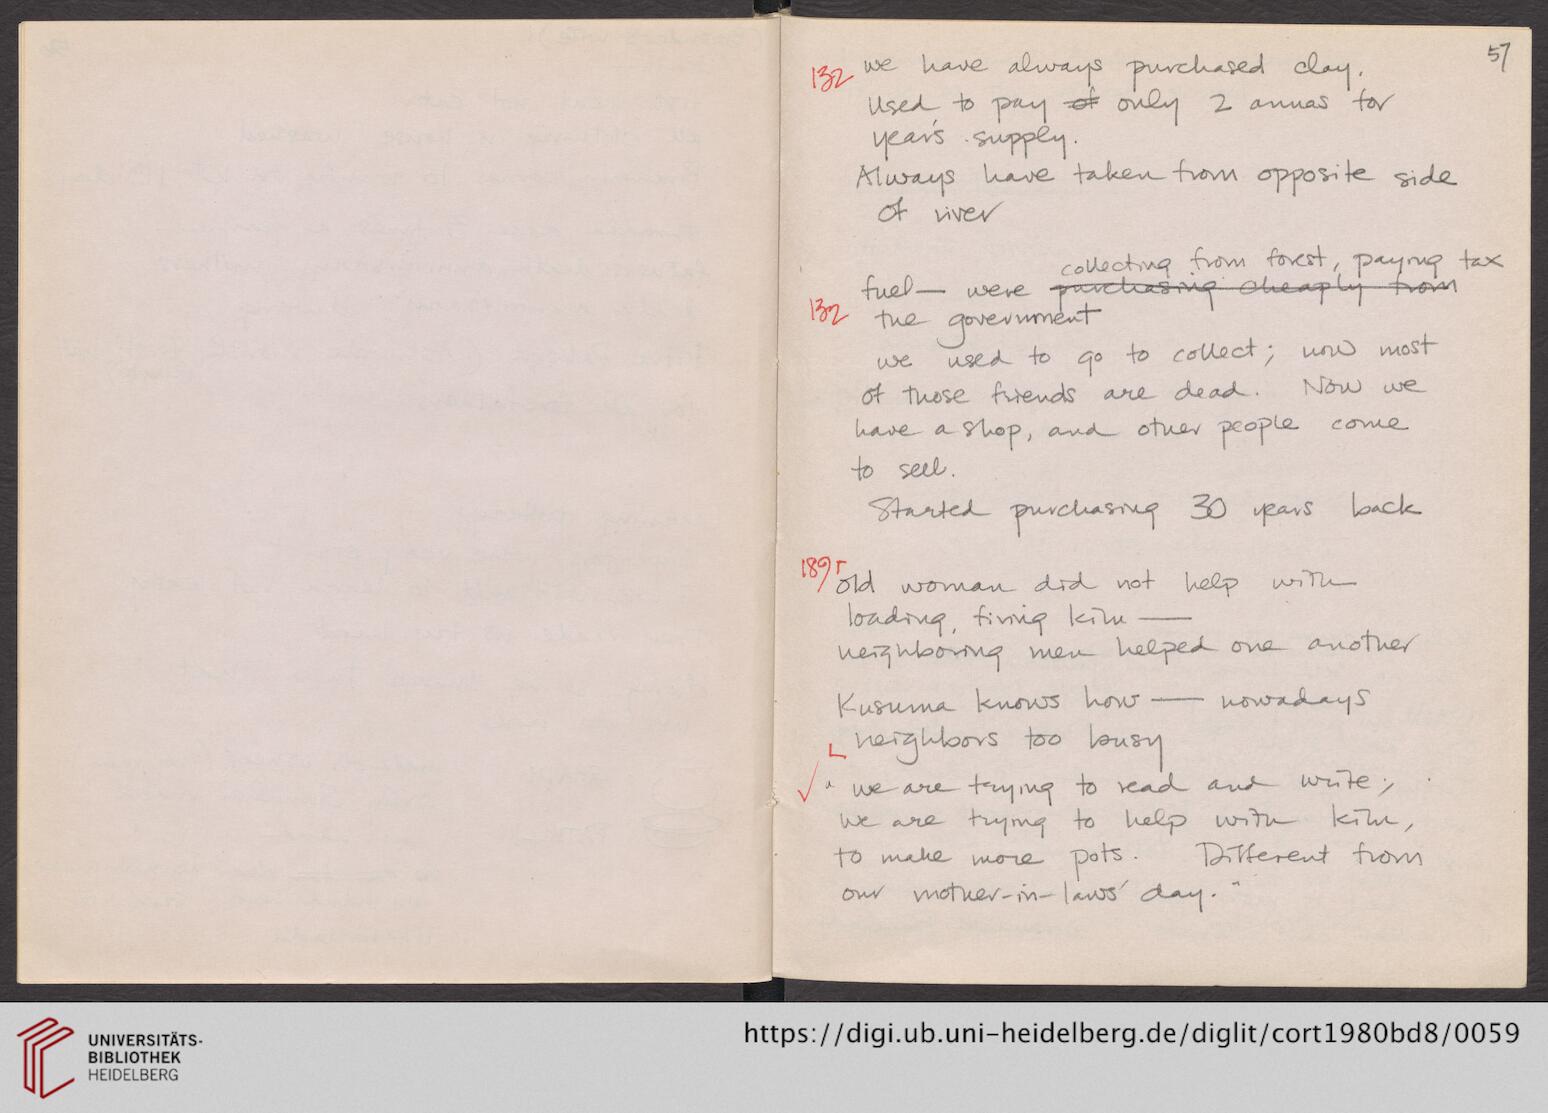 57
132 we have always purchased clay.
Used to pay of only 2 annas for
year's supply.
Always have taken from opposite side
of river
collecting from forest, paying tax
fuel — were purchasing cheaply from
132 the government
we used to go to collect; now most
of those friends are dead. Now we
have a shop, and other people come
to sell.
Started purchasing 30 years back
189 old woman did not help with
loading, firing kiln —
neighboring men helped one another
Kusuma knows how — nowadays
neighbors too busy
✓ "we are trying to read and write;
we are trying to help with kiln,
to make more pots. Different from
our mother-in-laws' day."
https://digi.ub.uni-heidelberg.de/diglit/cort1980bd8/0059
UNIVERSITÄTS-
BIBLIOTHEK
HEIDELBERG